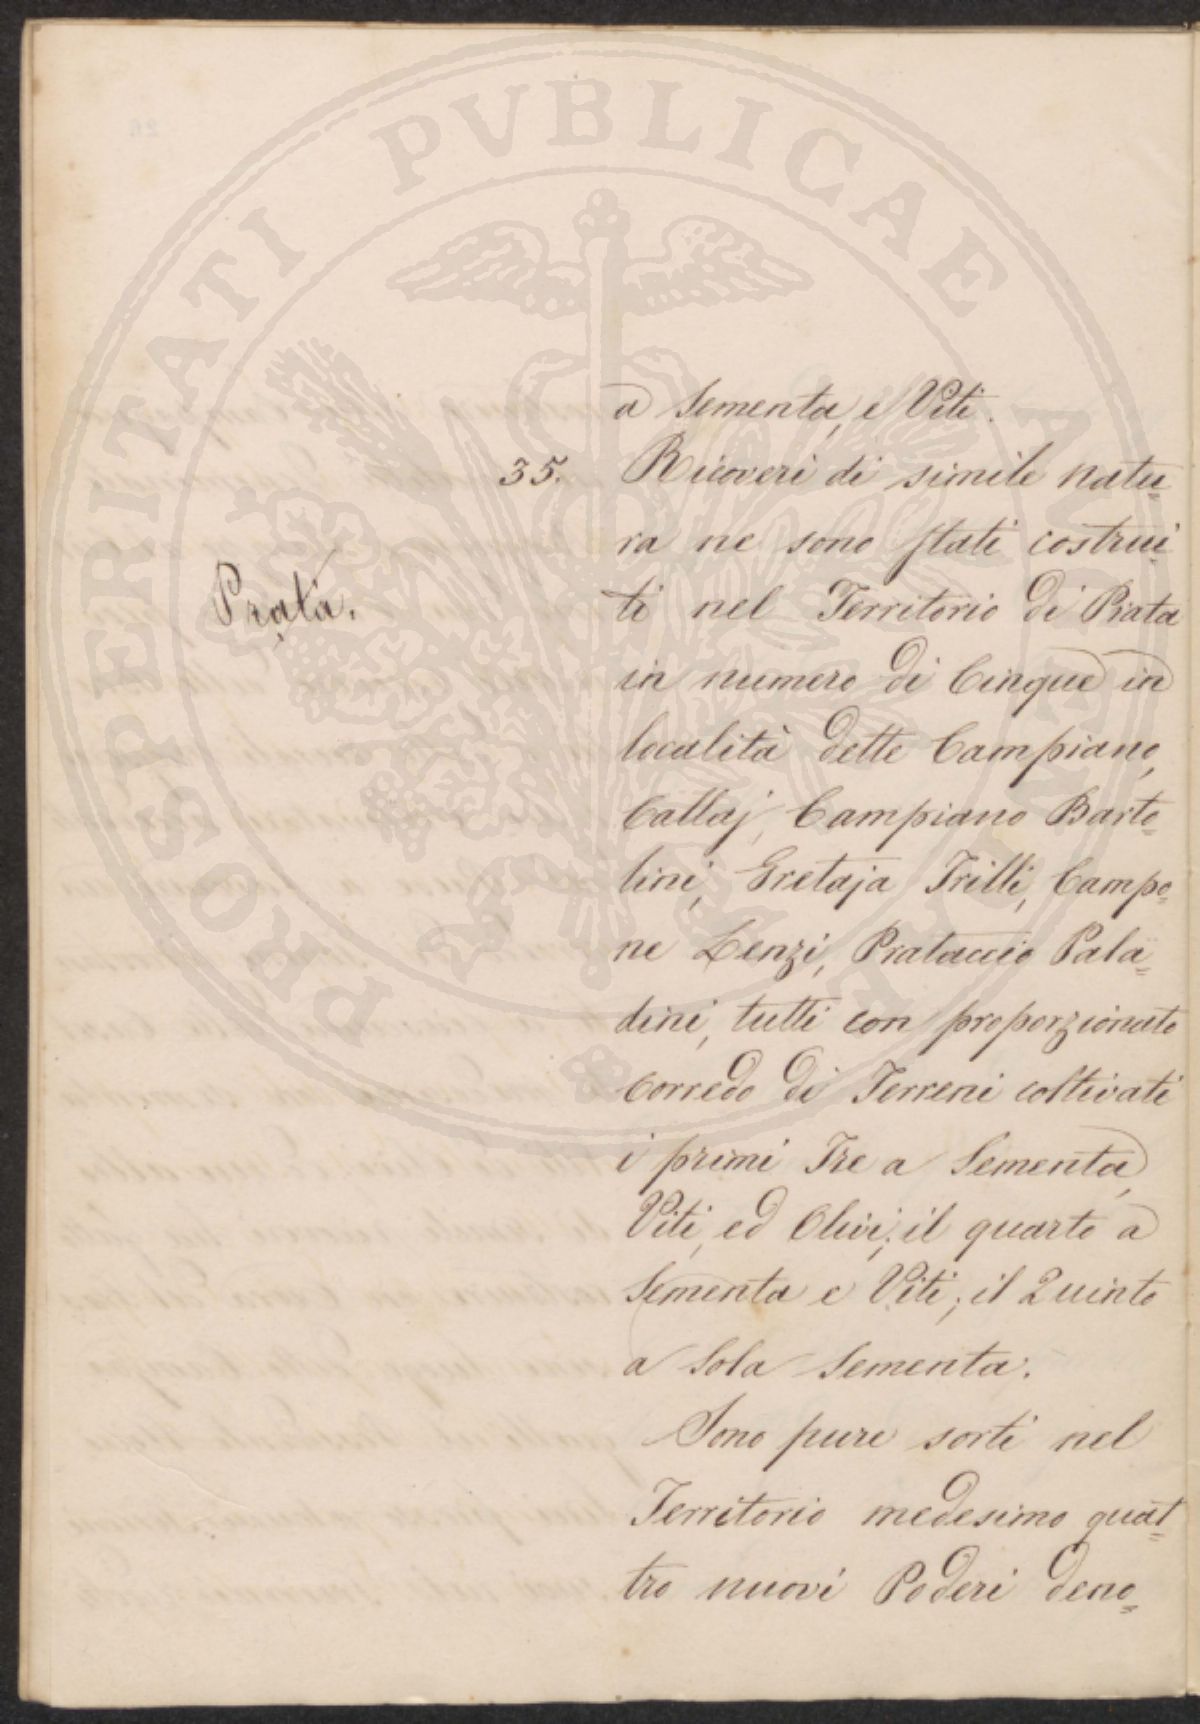 PROSPERITATI PVBLICAE AVGENDAE
a Sementa, e Viti.
35. Ricoveri di simile natu=
ra ne sono stati costrui=
Prata.
ti nel Territorio di Prata
in numero di Cinque in
località dette Campiano,
Callaj, Campiano Barto=
lini, Gretaja Trilli, Campo=
ne Lenzi, Prataccio Pala=
dini, tutti con proporzionato
Corredo di Terreni coltivati
i primi Tre a Sementa,
Viti, ed Olivi; il quarto a
Sementa e Viti; il Quinto
a Sola Sementa.
Sono pure sorti nel
Territorio medesimo quat=
tro nuovi Poderi deno=